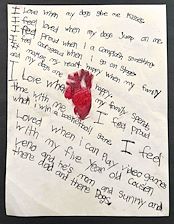 I Love when my dogs give me kisses.
I feel Loved when my dogs Jump on me.
I feel Proud when I a complish something
I feel courageous when I go on stages
It makes my heart happy when my family
and my dog
I Love when my family spends
time with me I feel Proud
when I win a basketball game. I feel
Loved when I can Play video games
with my five Year old cousen
Leno and he's mom and Sunny and
there dad and there Dogs